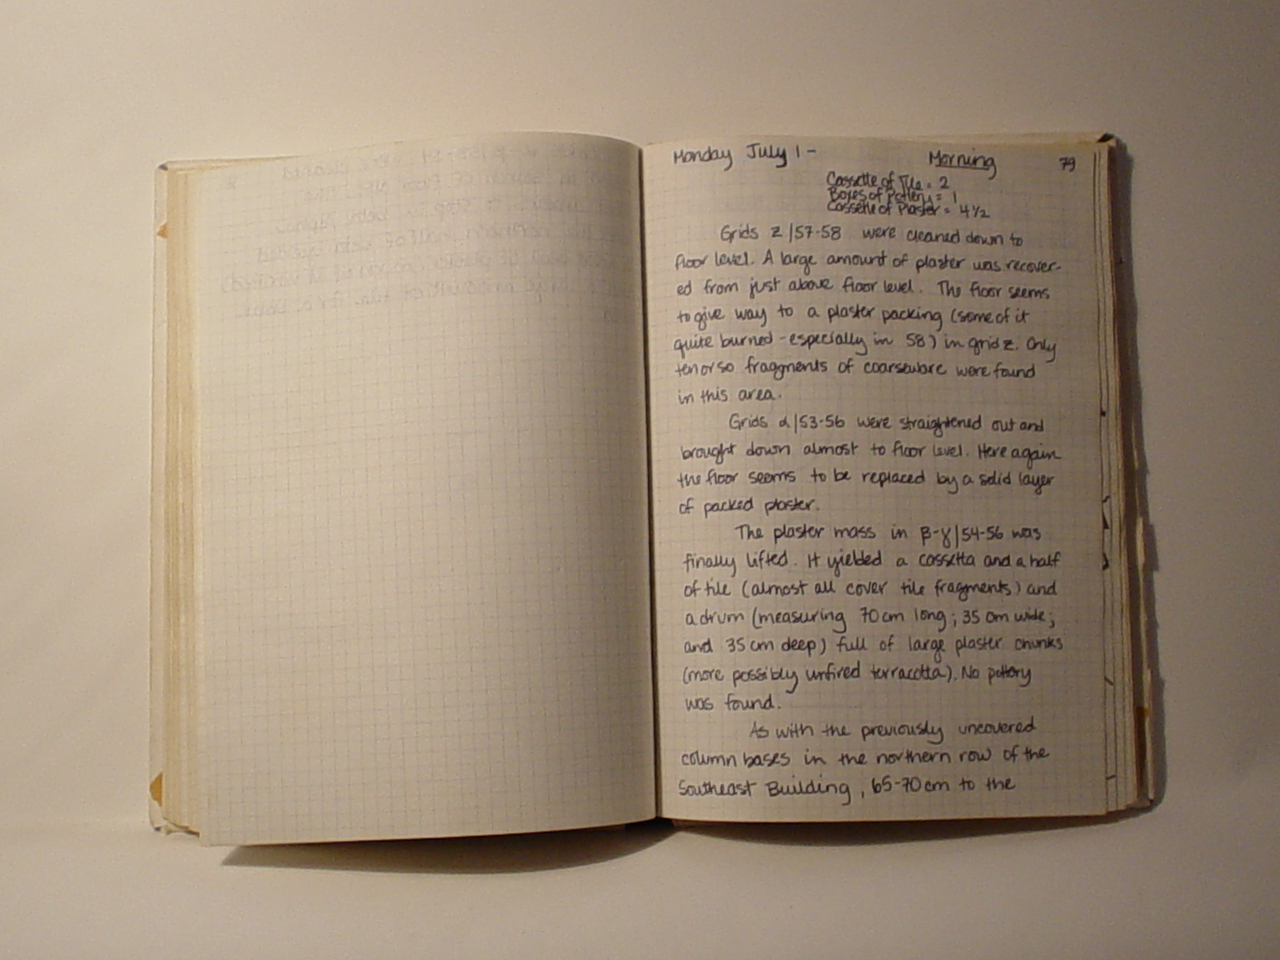 Monday July 1 - Morning 79
Cassette of Tile = 2
Boxes of Pottery = 1
Cassette of Plaster = 4 1/2
Grids z/57-58 were cleaned down to
floor level. A large amount of plaster was recover-
ed from just above floor level. The floor seems
to give way to a plaster packing (some of it
quite burned - especially in 58) in grid z. Only
ten or so fragments of coarseware were found
in this area.
Grids α/53-56 were straightened out and
brought down almost to floor level. Here again
the floor seems to be replaced by a solid layer
of packed plaster.
The plaster mass in β-γ/54-56 was
finally lifted. It yielded a cassetta and a half
of tile (almost all cover tile fragments) and
a drum (measuring 70 cm long; 35 cm wide;
and 35 cm deep) full of large plaster chunks
(more possibly unfired terracotta). No pottery
was found.
As with the previously uncovered
column bases in the northern row of the
Southeast Building, 65-70 cm to the